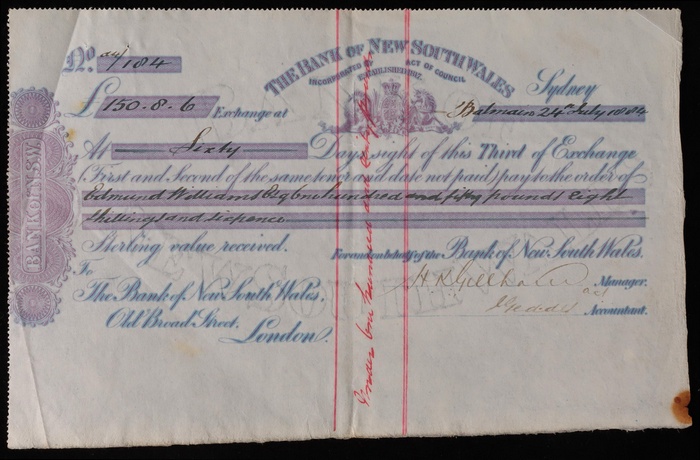 No. 184
THE BANK OF NEW SOUTH WALES
INCORPORATED BY ACT OF COUNCIL
ESTABLISHED 1817.
Sydney
£ 150.8.6 Exchange at Balmain 24th July 1884
At Sixty Days sight of this Third of Exchange
(First and Second of the same tenor and date not paid) pay to the order of
Edmund Williams Esq one hundred and fifty pounds eight
shillings and sixpence
Sterling value received. For and on behalf of the Bank of New South Wales.
To
The Bank of New South Wales, Manager.
Old Broad Street, Accountant.
London.
BANK OF N.S.W.
Under one hundred and fifty